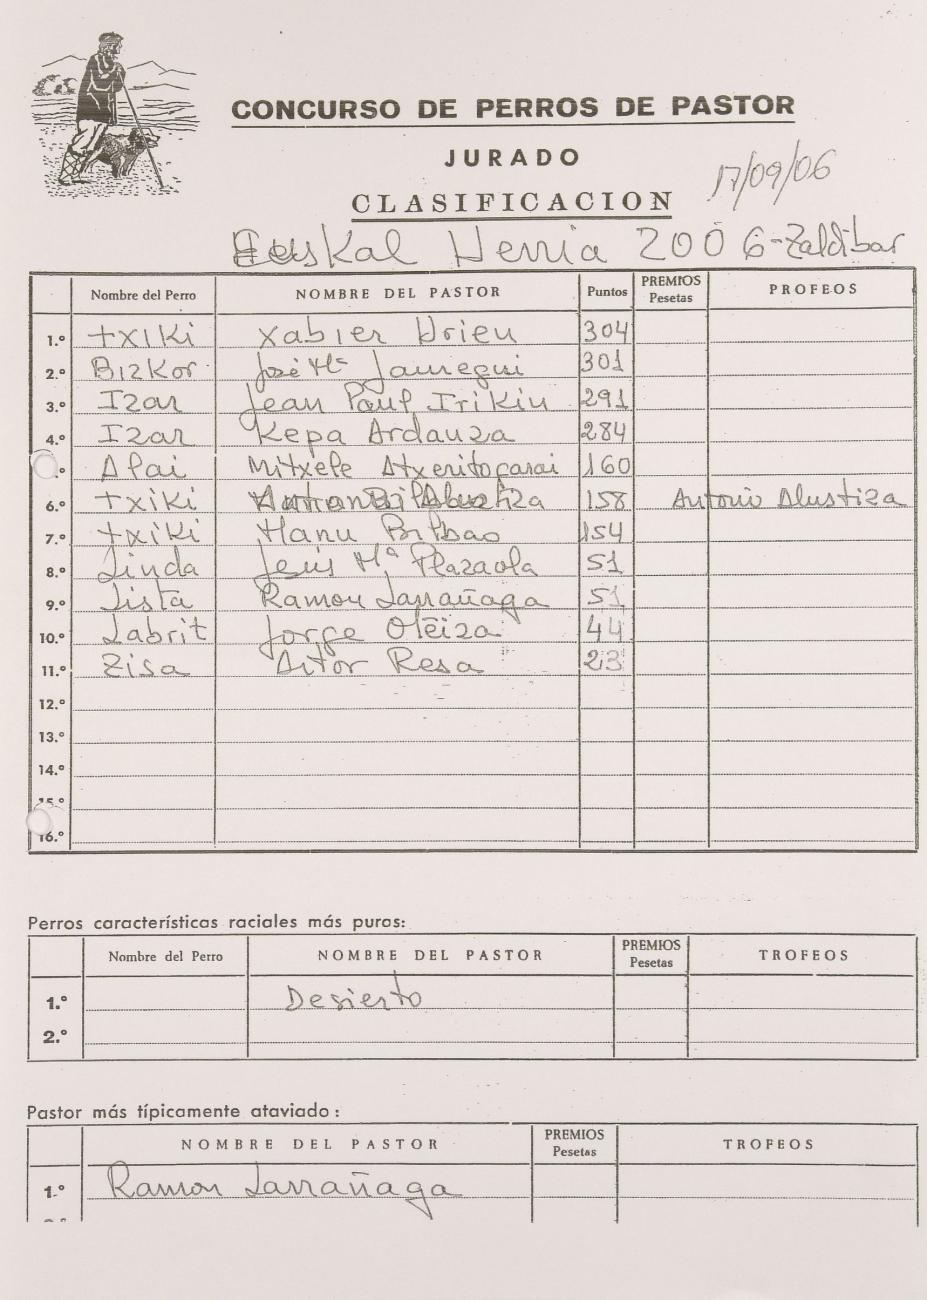 CONCURSO DE PERROS DE PASTOR
JURADO
17/09/06
CLASIFICACION
Euskal Herria 2006-Zaldibar
Nombre del Perro NOMBRE DEL PASTOR Puntos PREMIOS Pesetas PROFEOS
1.º txiki Xabier Urieu 304
2.º Bizkor José Mª Jauregui 301
3.º Izar Jean Paul Irikin 291
4.º Izar Kepa Ardanza 284
º Alai Mitxele 160
6.º txiki 158 Antonio Alustiza
7.º txiki Manu Bilbao 154
8.º Linda Jesús Mª Plazaola 51
9.º Lista Ramon Larrañaga 51
10.º Labrit Jorge Oteiza 44
11.º Zisa Aitor Resa 23
12.º
13.º
14.º
15.º
16.º
Perros características raciales más puras:
Nombre del Perro NOMBRE DEL PASTOR PREMIOS Pesetas TROFEOS
1.º Desierto
2.º
Pastor más típicamente ataviado:
NOMBRE DEL PASTOR PREMIOS Pesetas TROFEOS
1.º Ramon Larrañaga